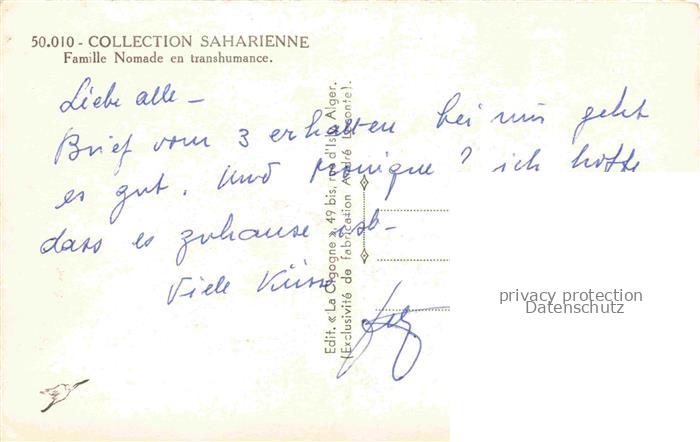 50.010 - COLLECTION SAHARIENNE
Famille Nomade en transhumance.
Liebe alle –
Brief vom 3 erhalten bei mir geht
es gut. Und Monique? ich hoffe
dass es zuhause ist –
Viele Küsse
Edit. « La Cigogne » 49 bis, rue d'Isly Alger.
(Exclusivité de fabrication André Leconte).
privacy protection
Datenschutz